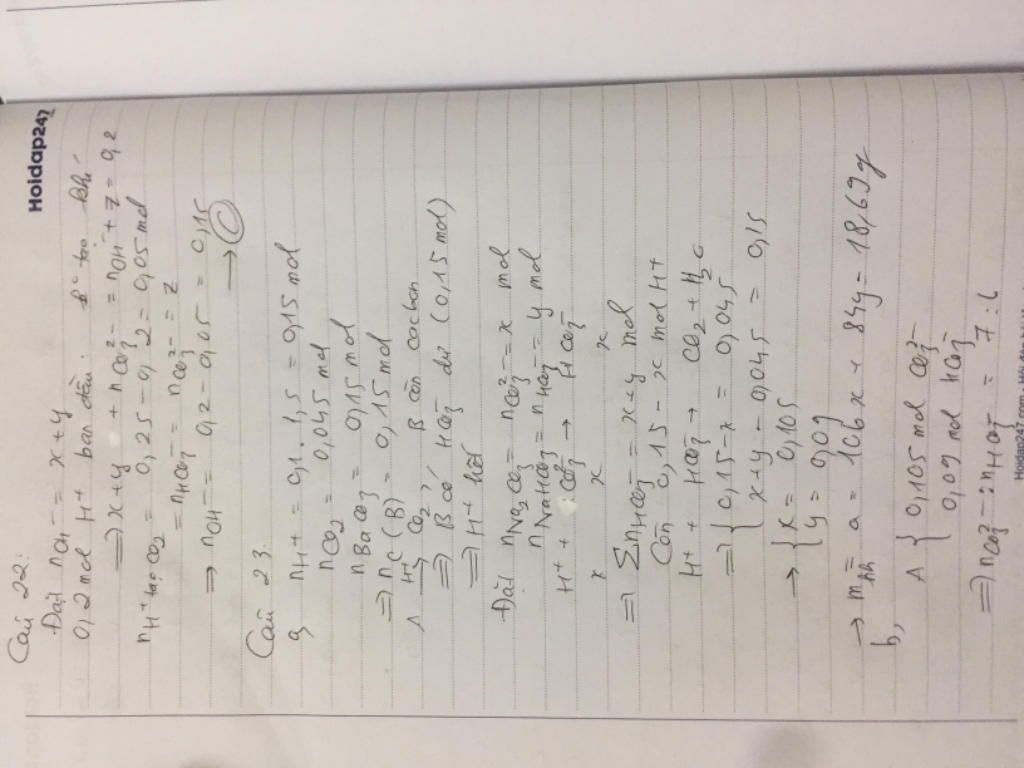 Hoidap247
Câu 22:
Đặt nOH⁻ = x+y
0,2 mol H⁺ ban đầu: tạo khí
⇒ x+y + nCO₃²⁻ = nOH⁻ + z = 0,2
nH⁺ tạo CO₂ = 0,25 - 0,2 = 0,05 mol
= nHCO₃⁻ = nCO₃²⁻ = z
⇒ nOH⁻ = 0,2 - 0,05 = 0,15
→ C
Câu 23.
a, nH⁺ = 0,1 . 1,5 = 0,15 mol
nCO₂ = 0,045 mol
nBaCO₃ = 0,15 mol
⇒ nC (B) = 0,15 mol
A H⁺→ CO₂, B còn cacbon
⇒ B có HCO₃⁻ dư (0,15 mol)
⇒ H⁺ hết
Đặt nNa₂CO₃ = nCO₃²⁻ = x mol
nNaHCO₃ = nHCO₃⁻ = y mol
H⁺ + CO₃²⁻ → HCO₃⁻
x x x
⇒ ΣnHCO₃⁻ = x+y mol
Còn 0,15 - x mol H⁺
H⁺ + HCO₃⁻ → CO₂ + H₂O
⇒ { 0,15 - x = 0,045
x+y - 0,045 = 0,15
→ { x = 0,105
y = 0,09
→ m hh = a = 106x + 84y = 18,69 g
b,
A { 0,105 mol CO₃²⁻
0,09 mol HCO₃⁻
⇒ nCO₃²⁻ : nHCO₃⁻ = 7 : 6